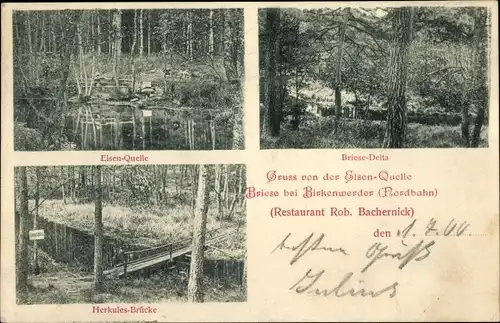 Eisen-Quelle
Briese-Delta
Gruss von der Eisen-Quelle
Briese bei Birkenwerder (Nordbahn)
(Restaurant Rob. Bachernick)
den 1.7.00
besten Gruß
Julius
Herkules-Brücke